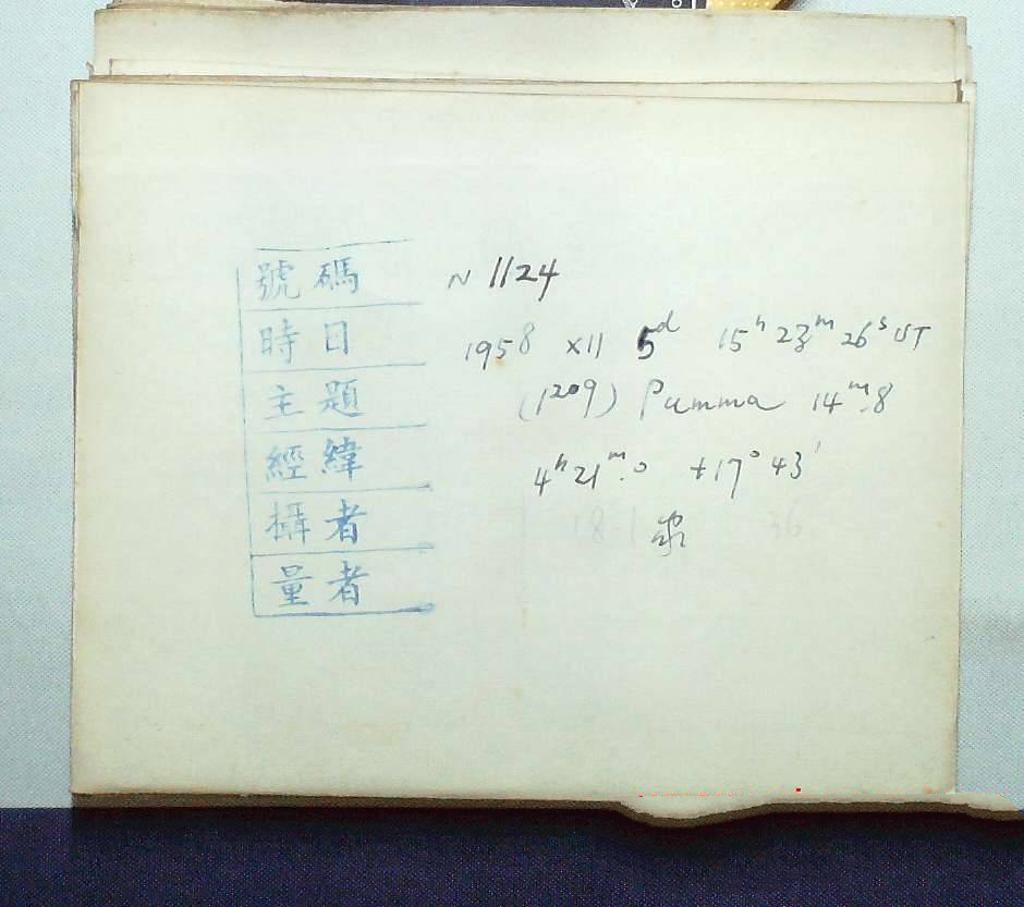 號碼 N 1124
時日 1958 XII 5d 15h 23m 26s UT
主題 (1209) Pumma 14m.8
經緯 4h 21m.0 +17° 43'
攝者
量者